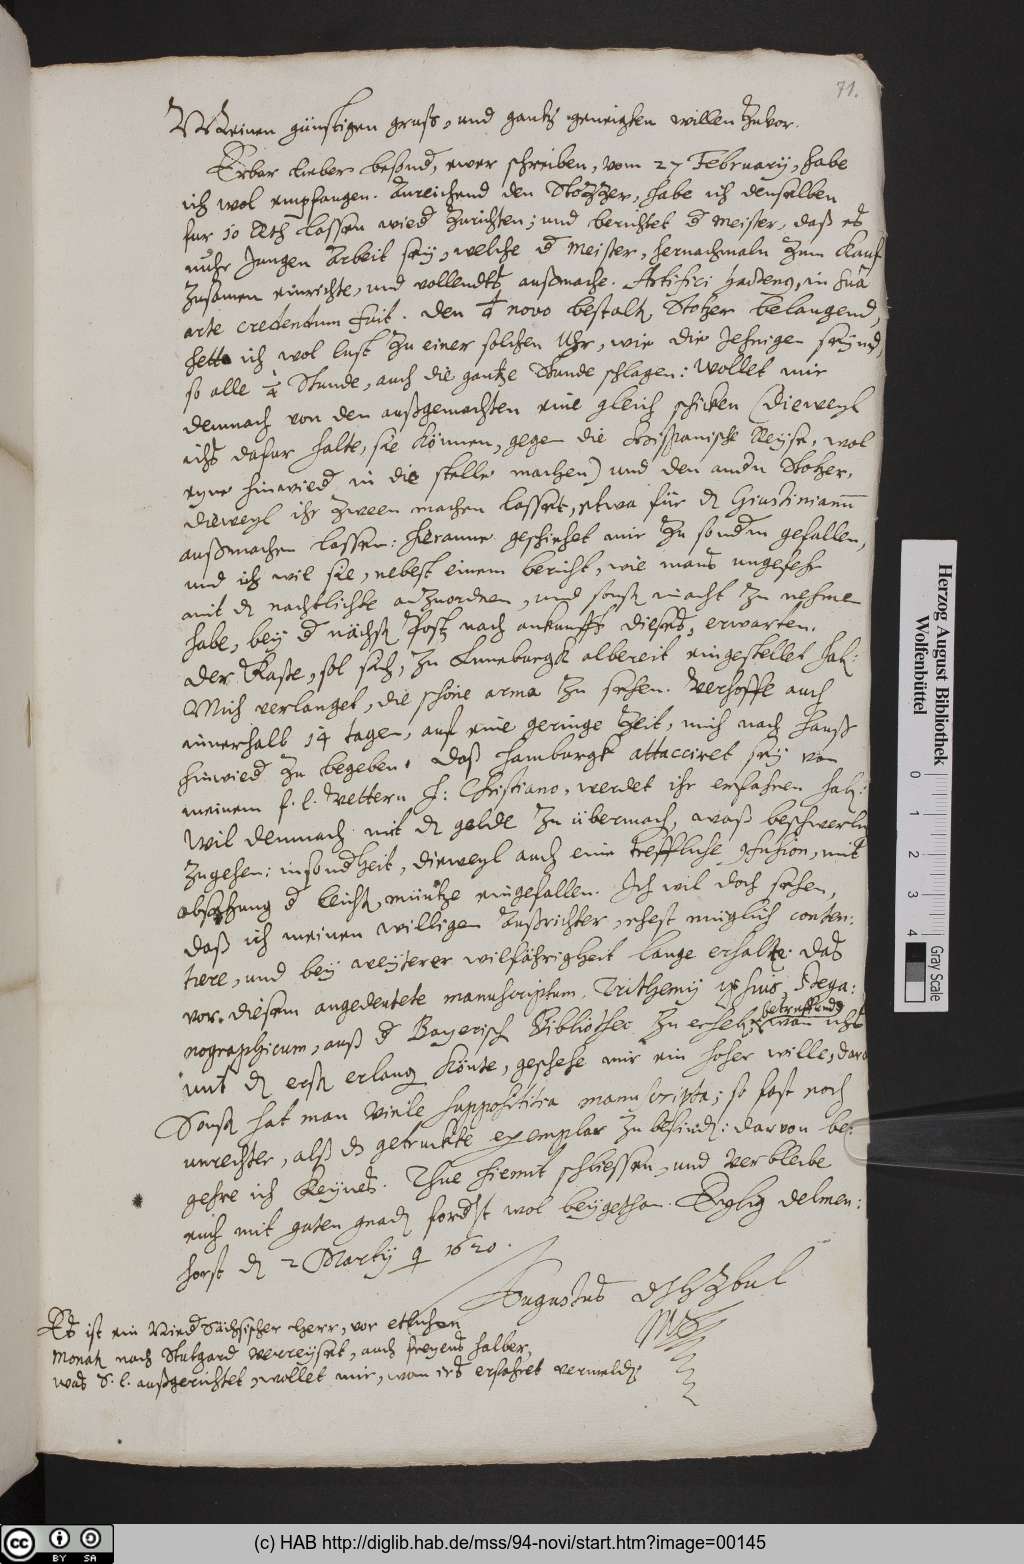 71.
Meinen günstigen gruß, und gantz geneigten willen zuvor.
Erbar lieber besond, ewer schreiben, vom 27 February, habe
ich wol empfangen. Anreichend den Stötzer, habe ich denselben
fur 10 lassen wied zurichten; und berichtet d meister, daß es
nuhr Jungen Arbeit sey, welche d meister, hernachmaln zum Kauf
zusamen einrichte, und vollendts außmache. Artifici in sua
arte credendum fuit. Den 1/4 novo bestalt Stötzer belangend,
hette ich wol lust zu einer solchen Uhr, wie die Jehnigen seynd,
so alle 1/4 Stunde, auch die gantze Stunde schlagen: Wollet mir
demnach von den außgemachten eine gleich schicken (Dieweyl
ichs dafur halte, sie können, gegen die Reyse, wol
eyne hinwied in die stelle machen) und den andn Stötzer,
dieweyl ihr zween machen lasset, etwa für d Giustiniann
außmachen lassen: Hieranne geschiehet mir zu sondn gefallen,
und ich wil sie, nebest einem bericht, wie mans ungefehr
mit d nachtlichte anzuordnen, und sonst in acht zu nehmen
habe, bey d nächst Post nach ankunft dieses, erwarten.
Der Kaste, sol sich, zu Luneburgk albereit eingestellet hab:
Mich verlanget, die schöne arma zu sehen. Verhoffe auch
innerhalb 14 tagen, auf eine geringe Zeit, mich nach Hauß
hinwied zu begeben. Daß Hamburgk attacciret sey von
meinem f. l. Vettern H: Christiano, werdet ihr erfahren hab:
Wil demnach mit d gelde zu übermach, waß beschwerlich
zugehen: insondheit, dieweyl auch eine treffliche confusion, mit
absetzung d leicht müntze eingefallen. Ich wil doch sehen,
daß ich meinen willigen Außrichter, ehest muglich conten:
tiere, und bey weyterer wilfährigkeit lange erhalte. Das
vor diesem angedeutete manuscriptum, Trithemij ipsius, Stega:
nographicum, auß d Bayerisch Bibliothec zu betreffend, wan ichs
mit d erst erlang könte, geschehe mir ein hoher wille, daran
Sonst hat man viele supposititia manuscripta; so fast noch
unrechter, alß d getruckte exemplar zu befind: davon be:
gehre ich keynes. Thue hiemit schliessen, und verbleibe
euch mit guten gnad fordst wol beygethan. Eylig Delmen:
horst d 2 Martij 1620.
Augustus
Es ist ein Nied Sächsischer Herr, vor etlichen
Monat nach Stutgard verreyset, auch freyens halber,
was S. l. außgerichtet, wollet mir, wan irs erfahret vermeld
Herzog August Bibliothek
Wolfenbüttel
0 1 2 3 4
Gray Scale
cc BY SA
(c) HAB http://diglib.hab.de/mss/94-novi/start.htm?image=00145